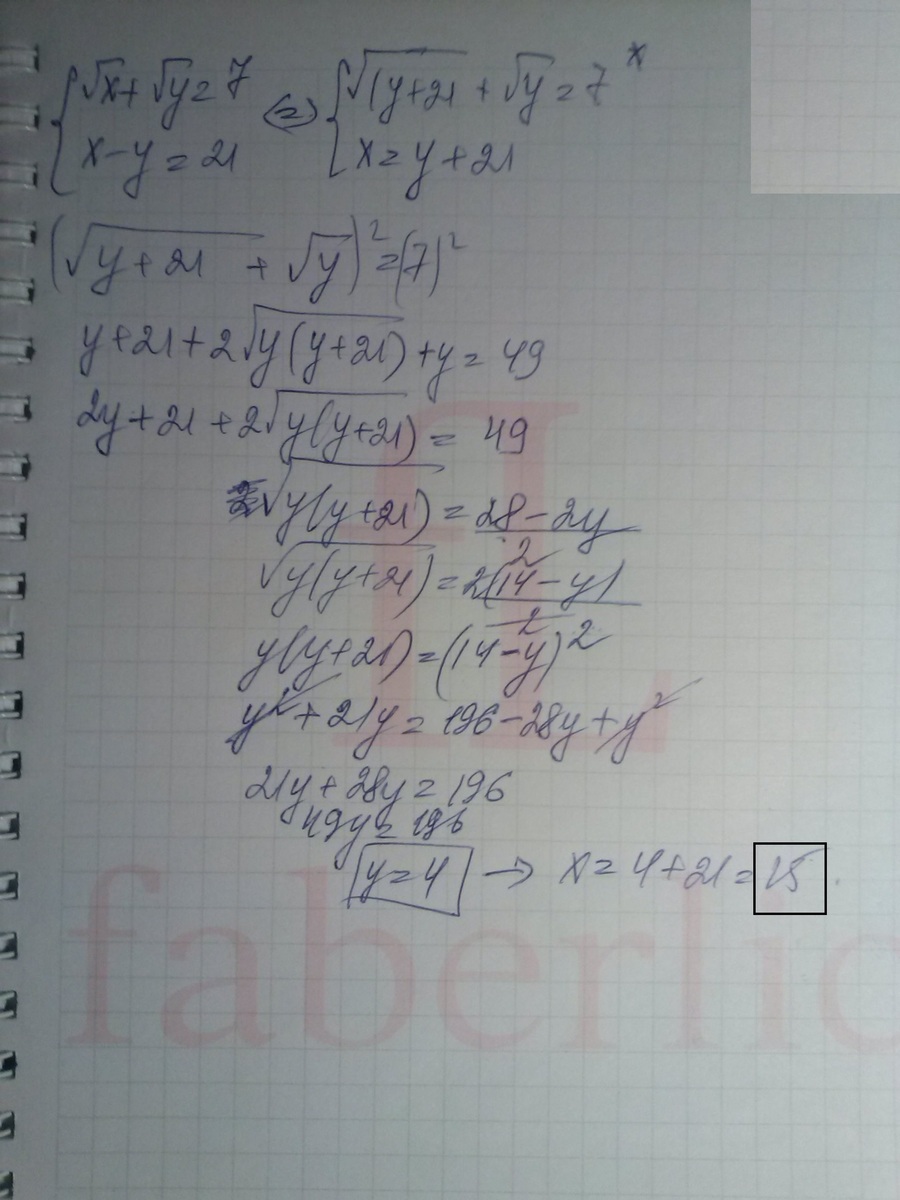 {√x + √y = 7 <=> {√(y+21 + √y = 7 *
x - y = 21 x = y + 21
(√y+21 + √y)² = (7)²
y + 21 + 2√y(y+21) + y = 49
2y + 21 + 2√y(y+21) = 49
√y(y+21) = 28 - 2y
2
√y(y+21) = 2(14 - y)
2
y(y+21) = (14 - y)²
y² + 21y = 196 - 28y + y²
21y + 28y = 196
49y = 196
y = 4 → x = 4 + 21 = 15
fl
faberlic